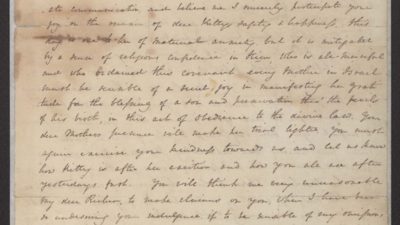 communication and believe me I sincerely participate your
joy on the news of dear Kitty's safety & happiness. This
day is one to her of maternal anxiety, but it is mitigated
by a sense of religious confidence in Him, who is all-merciful
and who ordained this covenant every Mother in Israel
must be sensible of a heart, joy in manifesting her grati
tude for the blessing of a son and preservation thro' the perils
of his birth, in this act of obedience to the divine law. Your
dear Mothers presence will make her trial lighter, you must
again exercise your kindness towards us and let us know
how Kitty is after her exertion and how you all are after
yesterdays fast. You will think me very unreasonable
my dear to make claims on you, when I have been
so undeserving your indulgence if to be sensible of my omissions